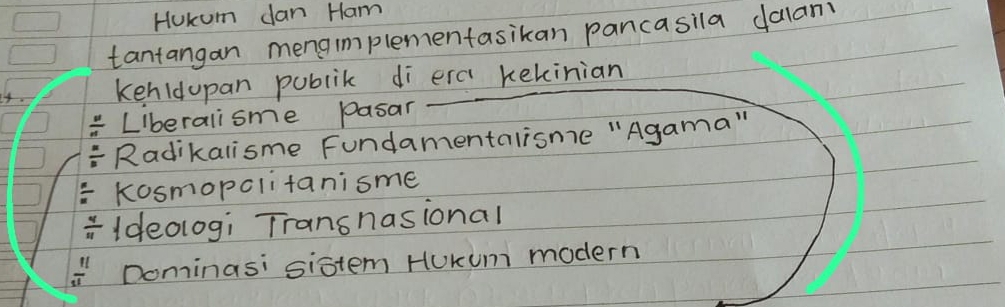 Hukum dan Ham
tantangan mengimplementasikan pancasila dalam
kehidupan publik di era kekinian
÷ Liberalisme pasar
÷ Radikalisme Fundamentalisme "Agama"
÷ Kosmopolitanisme
÷ Ideologi Transnasional
÷ Dominasi sistem Hukum modern